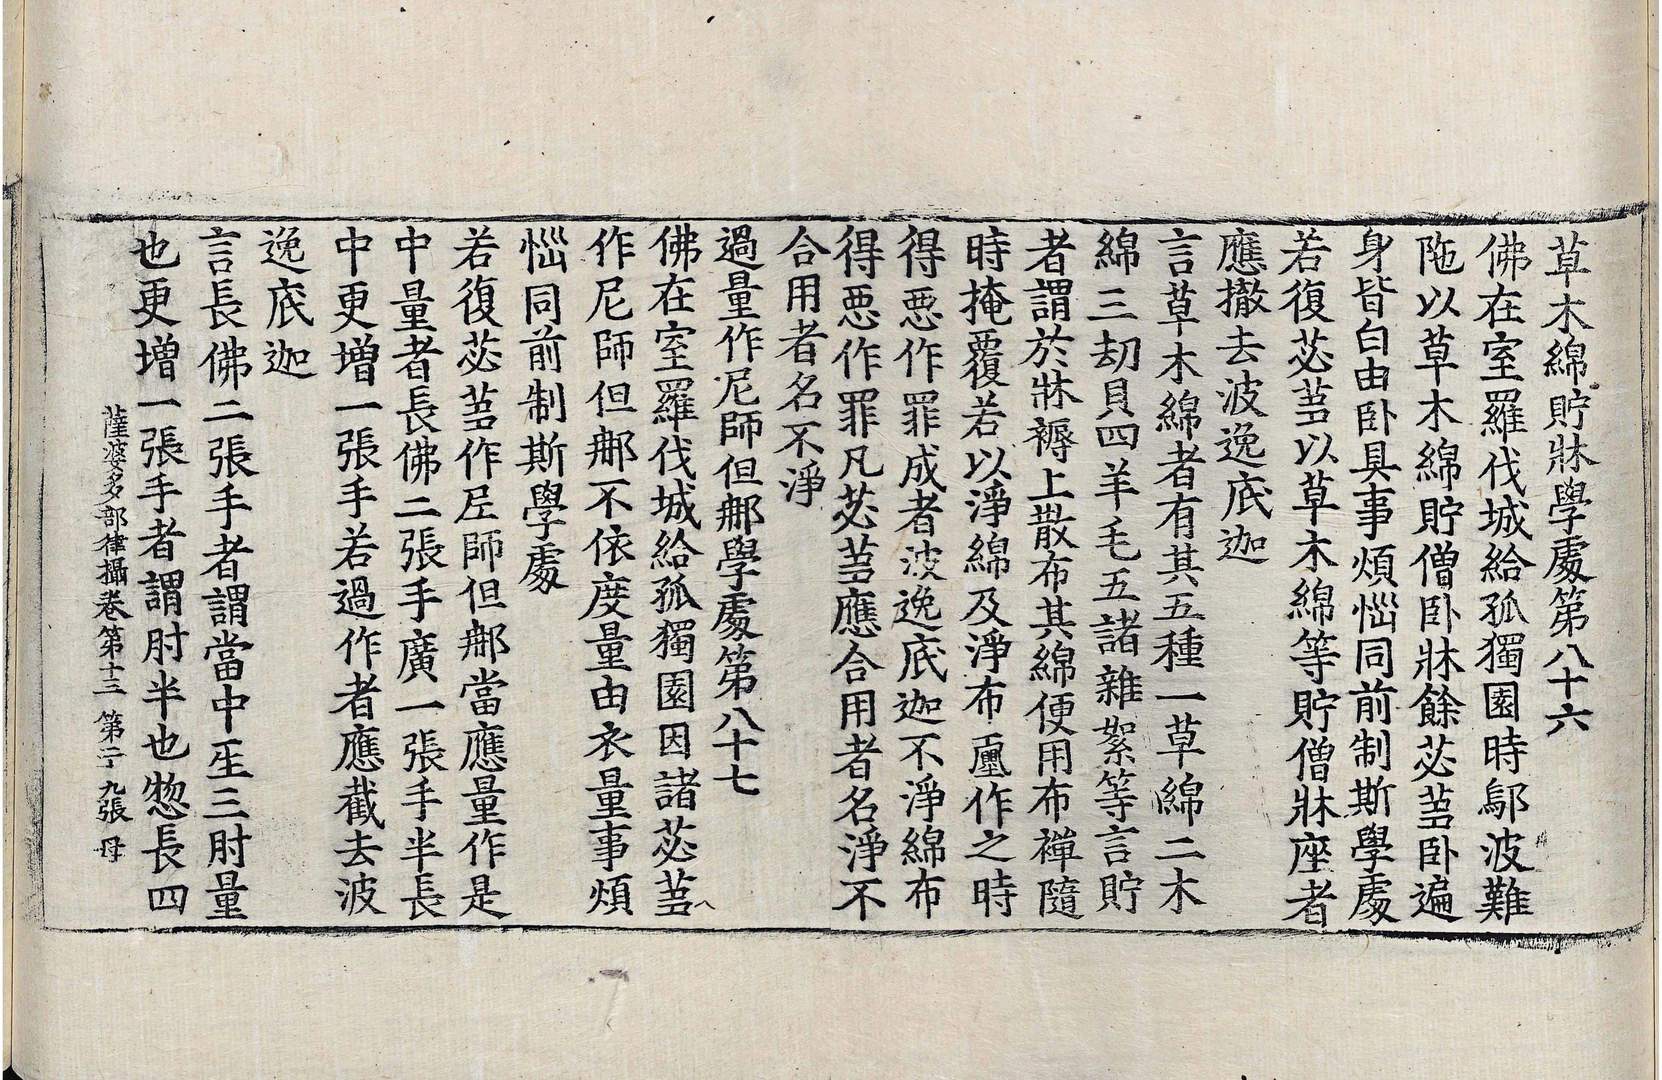 草木綿貯牀學處第八十六
佛在室羅伐城給孤獨園時鄔波難
陁以草木綿貯僧卧牀餘苾芻卧遍
身皆白由卧具事煩惱同前制斯學處
若復苾芻以草木綿等貯僧牀座者
應撤去波逸底迦
言草木綿者有其五種一草綿二木
綿三刧貝四羊毛五諸雜絮等言貯
者謂於牀褥上散布其綿便用布襌隨
時掩覆若以淨綿及淨布壐作之時
得惡作罪成者波逸底迦不淨綿布
得惡作罪凡苾芻應合用者名淨不
合用者名不淨
過量作尼師但那學處第八十七
佛在室羅伐城給孤獨園因諸苾芻
作尼師但那不依度量由衣量事煩
惱同前制斯學處
若復苾芻作尼師但那當應量作是
中量者長佛二張手廣一張手半長
中更增一張手若過作者應截去波
逸底迦
言長佛二張手者謂當中人三肘量
也更增一張手者謂肘半也惣長四
薩婆多部律攝卷第十三 第二十九張 母